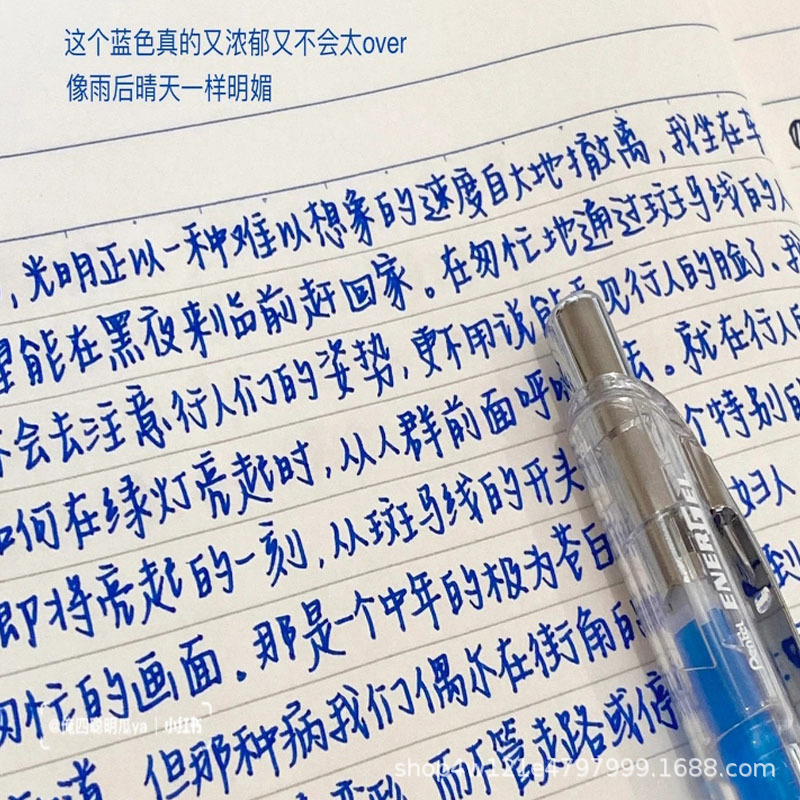 这个蓝色真的又浓郁又不会太over
像雨后晴天一样明媚
,光明正以一种难以想象的速度自大地撤离,我坐在车
能在黑夜来临前赶回家。在匆忙地通过斑马线的人
不会去注意行人们的姿势,更不用说能看见行人的脸了、我
如何在绿灯亮起时,从人群前面呼啸 去。就在行人
即将亮起的一刻,从斑马线的开头 个特别的
匆忙的画面。那是一个中年的极为苍白 妇人
到
道,但那种病我们偶尔在街角的
而不管走路或停
Pentel ENERGEL
@俺四聪明瓜ya | 小红书
1688.com